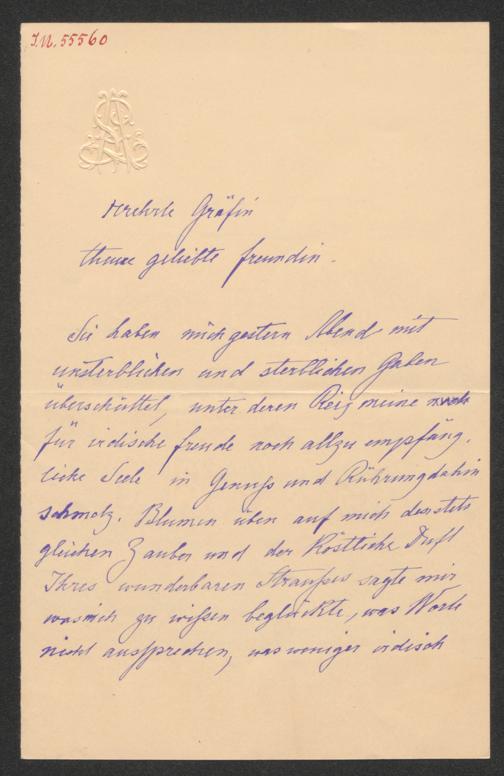 I.N. 55560
Verehrte Gräfin
theure geliebte freundin.
Sie haben mich gestern Abend mit
unsterblichen und sterblichen Gaben
überschüttet, unter deren Reiz meine
für irdische freude noch allzu empfäng,
liche Seele in Genuss und Rührung dahin
schmolz. Blumen üben auf mich den stets
gleichen Zauber und der Köstliche Duft
Ihres wunderbaren Strausses sagte mir
was mich zu wissen beglückte, was Worte
nicht aussprechen, was weniger irdisch